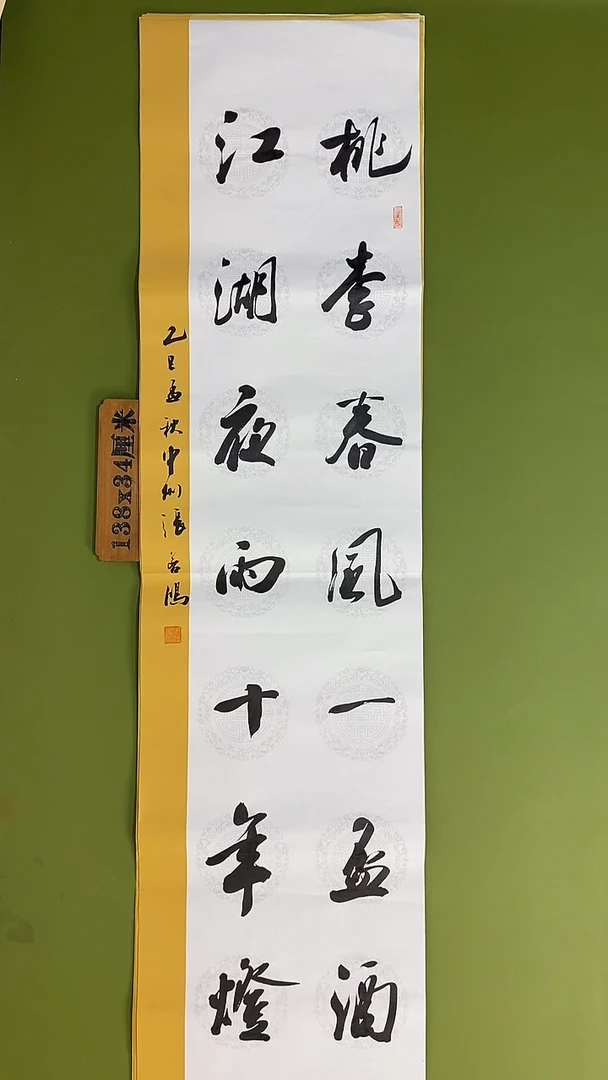 桃李春風一盃酒
江湖夜雨十年燈
乙巳孟秋中州張
138x34厘米